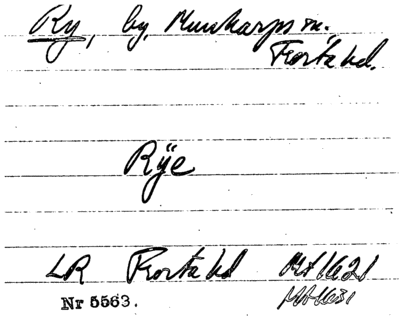 Ry, by, Munkarps sn.,
Frosta hd.
Rÿe
LR Frosta hd Mt 1621
Mt 1631
Nr 5563.